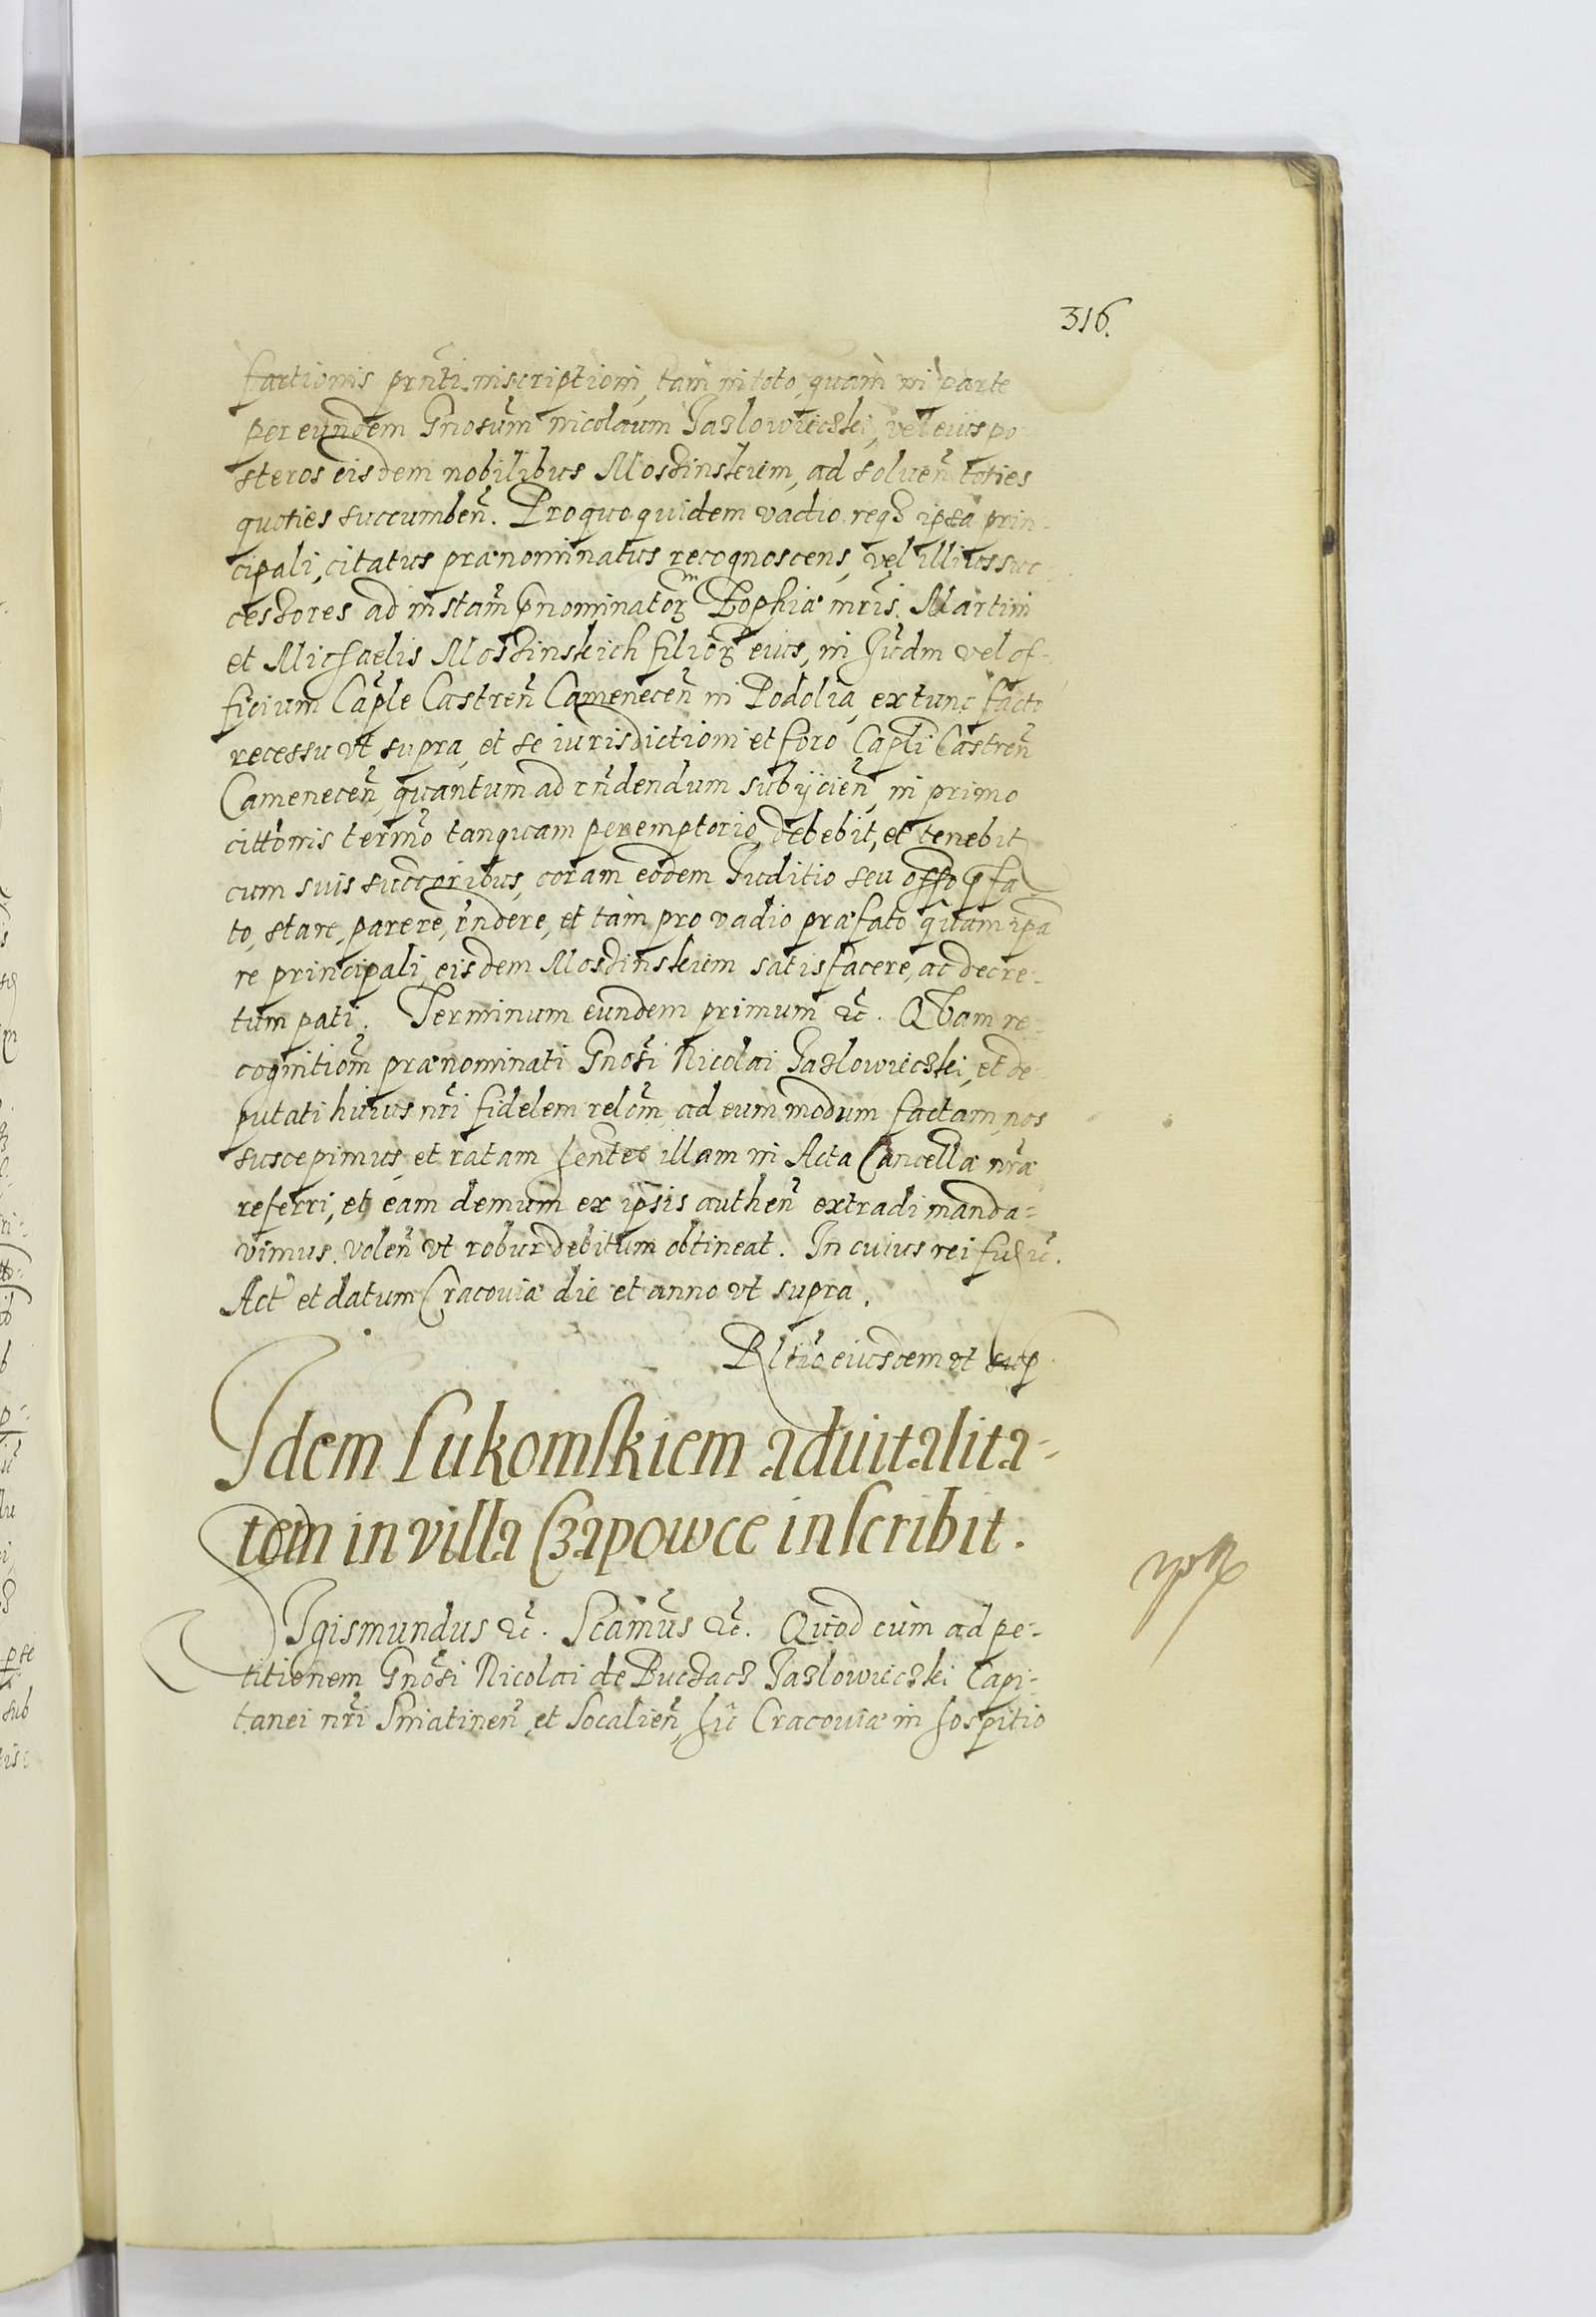 316.
factionis prñti inscriptioni, tam in toto, quam in parte
per eundem Gnosum Nicolaum Jazlowieczki, vel eius po-
steros eisdem nobilibus Mosdinskiem, ad soluen̄ toties
quoties succumben̄. Pro quo quidem vadio reqȝ ipsa prin-
cipali, citatus prænominatus recognoscens, vel illius suc-
cessores ad instam p̄nominatorꝫ Zophiæ mr̄is, Martini
et Michaelis Mosdinskich filiorꝫ eius, in Judm vel of-
ficium Caple Castren̄ Camenecen̄ in Podolia, ex tunc facto
recessu vt supra, et se iurisdictioni et foro Capli Castren̄
Camenecen̄, quantum ad rñdendum subijcien̄, in primo
cittōnis termō tanquam peremptorio, debebit, et tenebit
cum suis succoribus, coram eodem Juditio seu offo p̄fa
to, stare, parere, rñdere, et tam pro vadio præfato quam ipa
re principali, eisdem Mosdinskiem satisfacere, ac decre-
tum pati. Terminum eundem primum &c. Qvam re-
cognitiom prænominati Gnosi Nicolai Jazlowieczki, et de-
putati huius nr̄i fidelem relom̄, ad eum modum factam, nos
suscepimus, et ratam hentes illam in Acta Cancellæ nr̄æ
referri, et eam demum ex ipsis authen̄ extradi manda-
vimus volen̄ vt robur debitum obtineat. In cuius rei fi &c.
Act et datum Cracoviæ die et anno vt supra.
Rltio eiusdem vt sup
Idem Lukomskiem advitalita-
tem in villa Czapowce inscribit.
SIgismundus &c. Scamus &c. Quod cum ad pe-
titionem Gnosi Nicolai de Buczacz Jazlowieczki Capi-
tanei nr̄i Sniatinen̄, et Socalien̄, hic Cracoviæ in hospitio